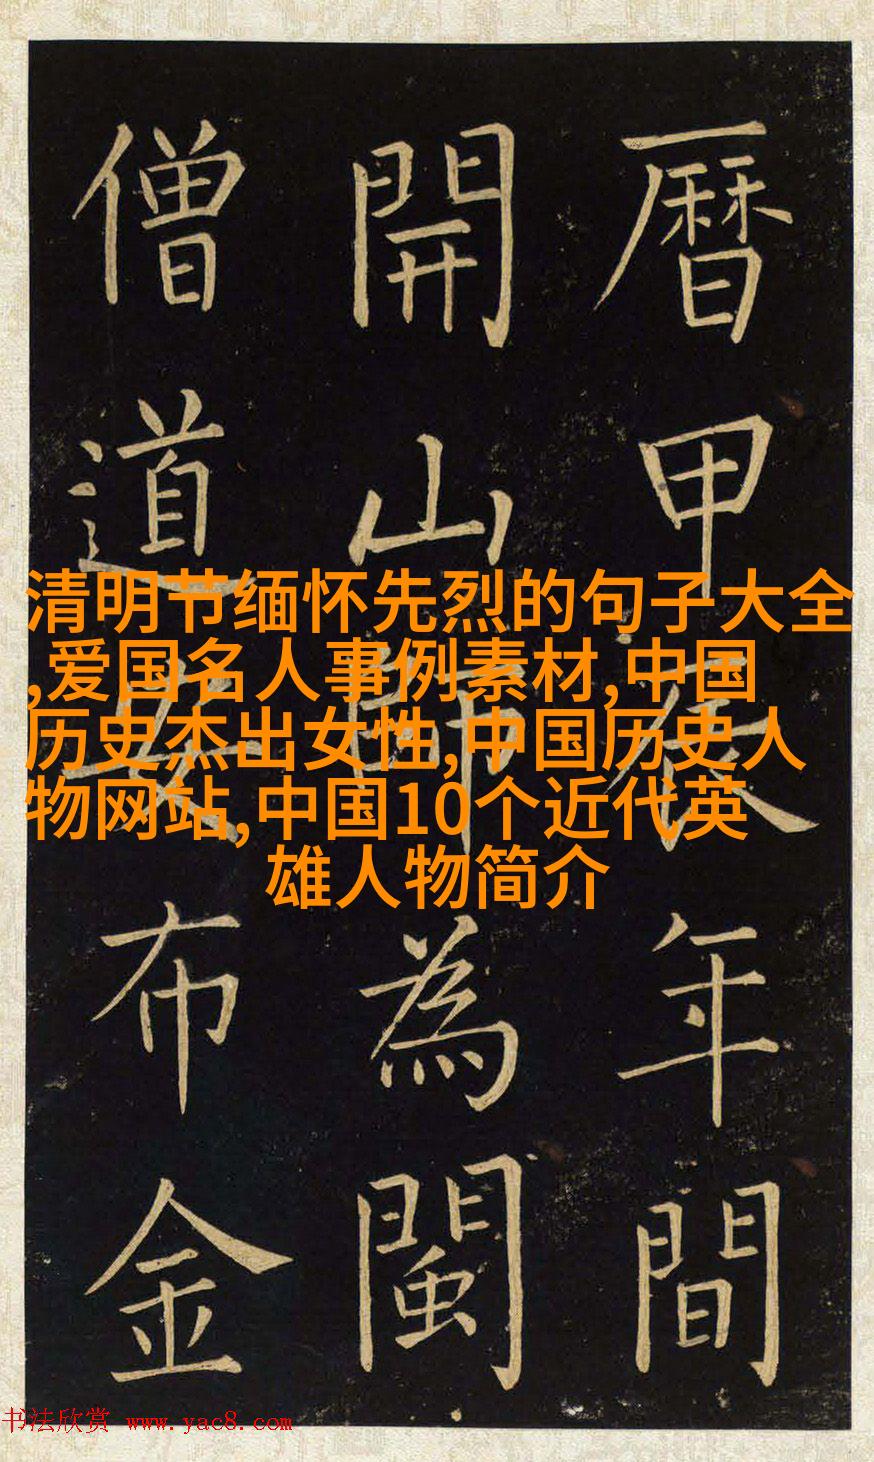 曆甲辰年間
開山師為閩
僧道安布金
清明节缅怀先烈的句子大全
,爱国名人事例素材,中国
历史杰出女性,中国历史人
物网站,中国10个近代英
雄人物简介
书法欣赏 www.yac8.com